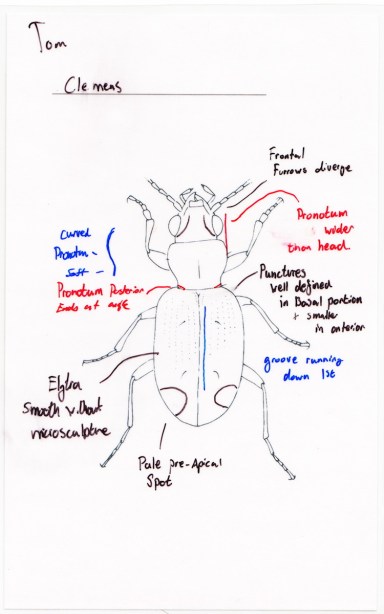 Tom
Clemens
Frontal
Furrows diverge
Pronotum
is wider
than head
Curved
Pronotum
Soft
Pronotum Posterior
Ends at angle
Punctures
well defined
in Dorsal portion
+ smaller
in anterior
groove running
down 1st
Elytra
Smooth without
microsculpture
Pale pre-Apical
Spot